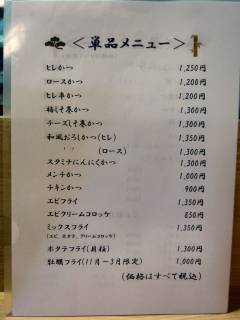 ＜単品メニュー＞
ヒレかつ 1,250円
ロースかつ 1,200円
ヒレ串かつ 1,200円
梅しそ巻かつ 1,300円
チーズしそ巻かつ 1,300円
和風おろしかつ(ヒレ) 1,350円
〃 (ロース) 1,300円
スタミナにんにくかつ 1,300円
メンチかつ 1,000円
チキンかつ 900円
エビフライ 1,350円
エビクリームコロッケ 850円
ミックスフライ 1,350円
(エビ、ホタテ、クリームコロッケ)
ホタテフライ(貝柱) 1,300円
牡蠣フライ(11月～3月限定) 1,000円
(価格はすべて税込)